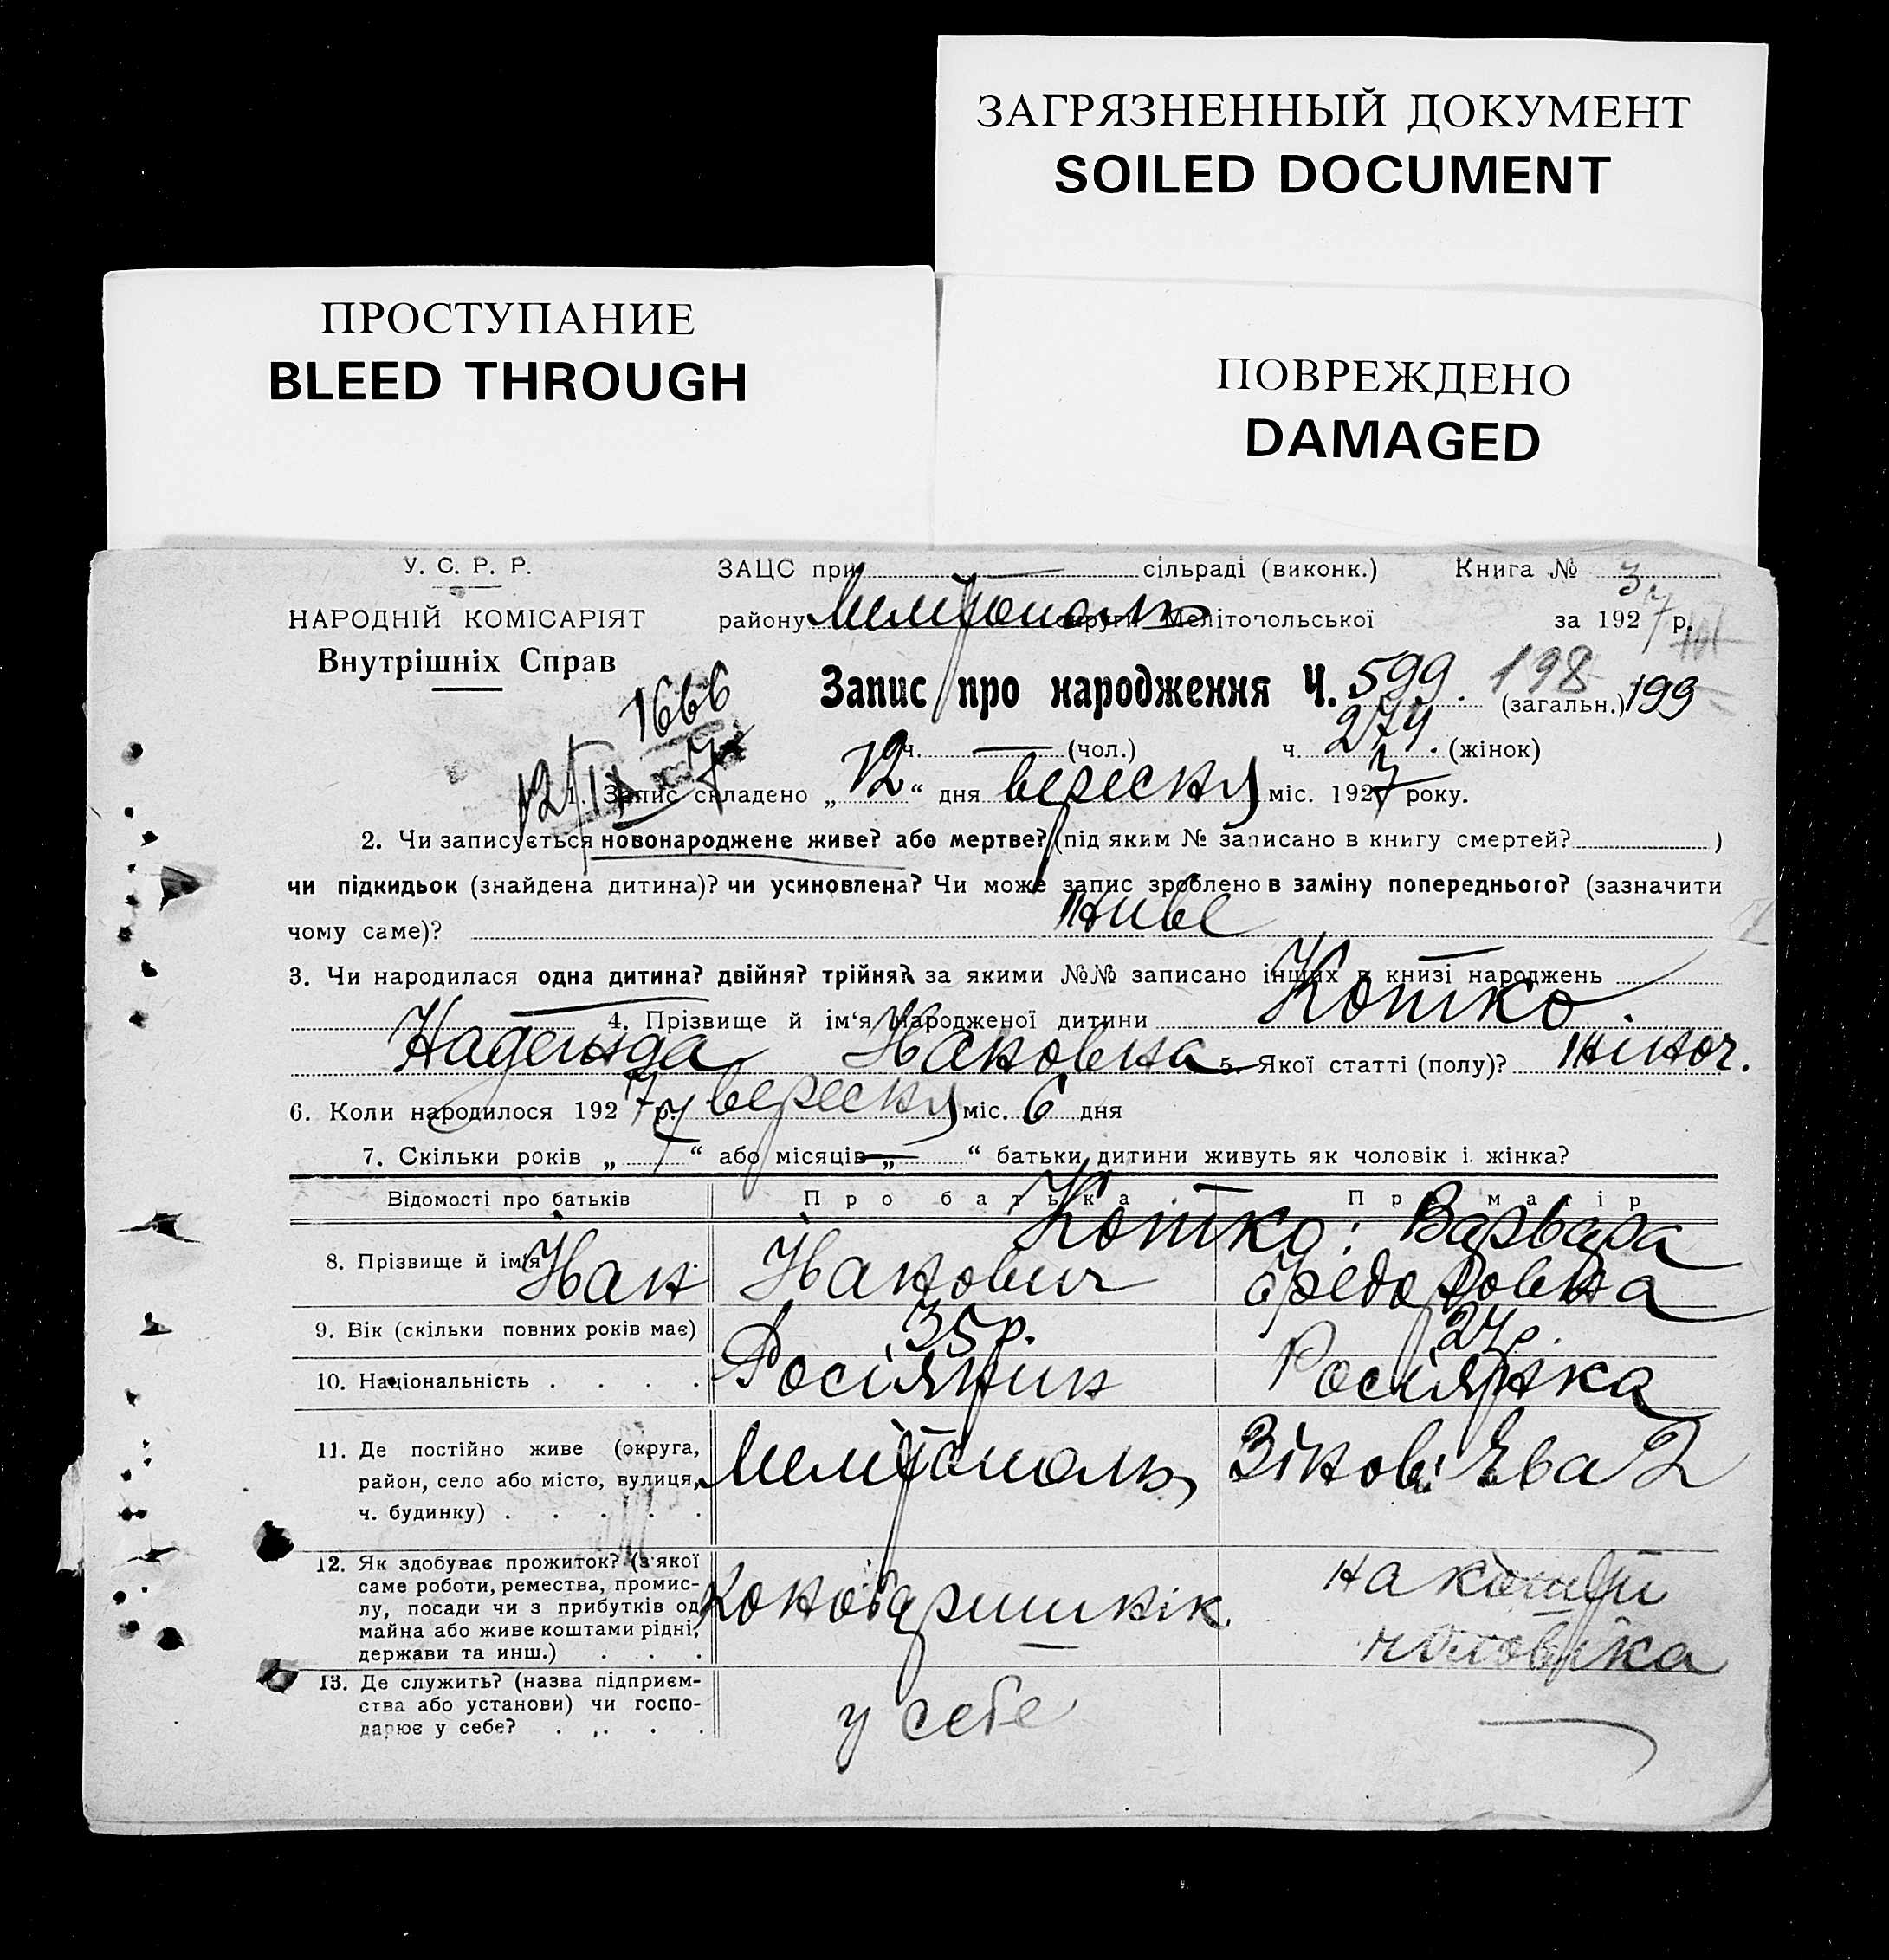 ЗАГРЯЗНЕННЫЙ ДОКУМЕНТ
SOILED DOCUMENT
ПРОСТУПАНИЕ
BLEED THROUGH
ПОВРЕЖДЕНО
DAMAGED
У. С. Р. Р.
НАРОДНІЙ КОМІСАРІЯТ
Внутрішніх Справ
ЗАЦС при — сільраді (виконк.) Книга № 3
району Мелітополь округи Мелітопольської за 1927 р.
1666
Запис про народження Ч. 599. 198 (загальн.) 199
ч. — (чол.) ч. 274. (жінок)
12/IX 7
1. Запис складено „12“ дня вересня міс. 1927 року.
2. Чи записується новонароджене живе? або мертве? (під яким № записано в книгу смертей? )
чи підкидьок (знайдена дитина)? чи усиновлена? Чи може запис зроблено в заміну попереднього? (зазначити
чому саме)? живе
3. Чи народилася одна дитина? двійня? трійня? за якими №№ записано інших в книзі народжень
4. Прізвище й ім‘я народженої дитини Котко.
Надежда Івановна 5. Якої статті (полу)? жіноч.
6. Коли народилося 1927 р. у вересня міс. 6 дня
7. Скільки років „7“ або місяців „—“ батьки дитини живуть як чоловік і жінка?
Відомості про батьків Про батька Про матір
8. Прізвище й ім‘я Котко: Варвара
Іван Іванович Федоровна
9. Вік (скільки повних років має) 35 р. 27 р.
10. Національність . . . . Росіянин Росіянка
11. Де постійно живе (округа,
район, село або місто, вулиця,
ч. будинку) . . . . .
Мелітополь, Зінов'єва 2
12. Як здобуває прожиток? (з якої
саме роботи, ремества, промис-
лу, посади чи з прибутків од
майна або живе коштами рідні,
держави та инш.) . . .
на кошти
чоловіка
13. Де служить? (назва підприєм-
ства або установи) чи госпо-
дарює у себе? . . . .
у себе —